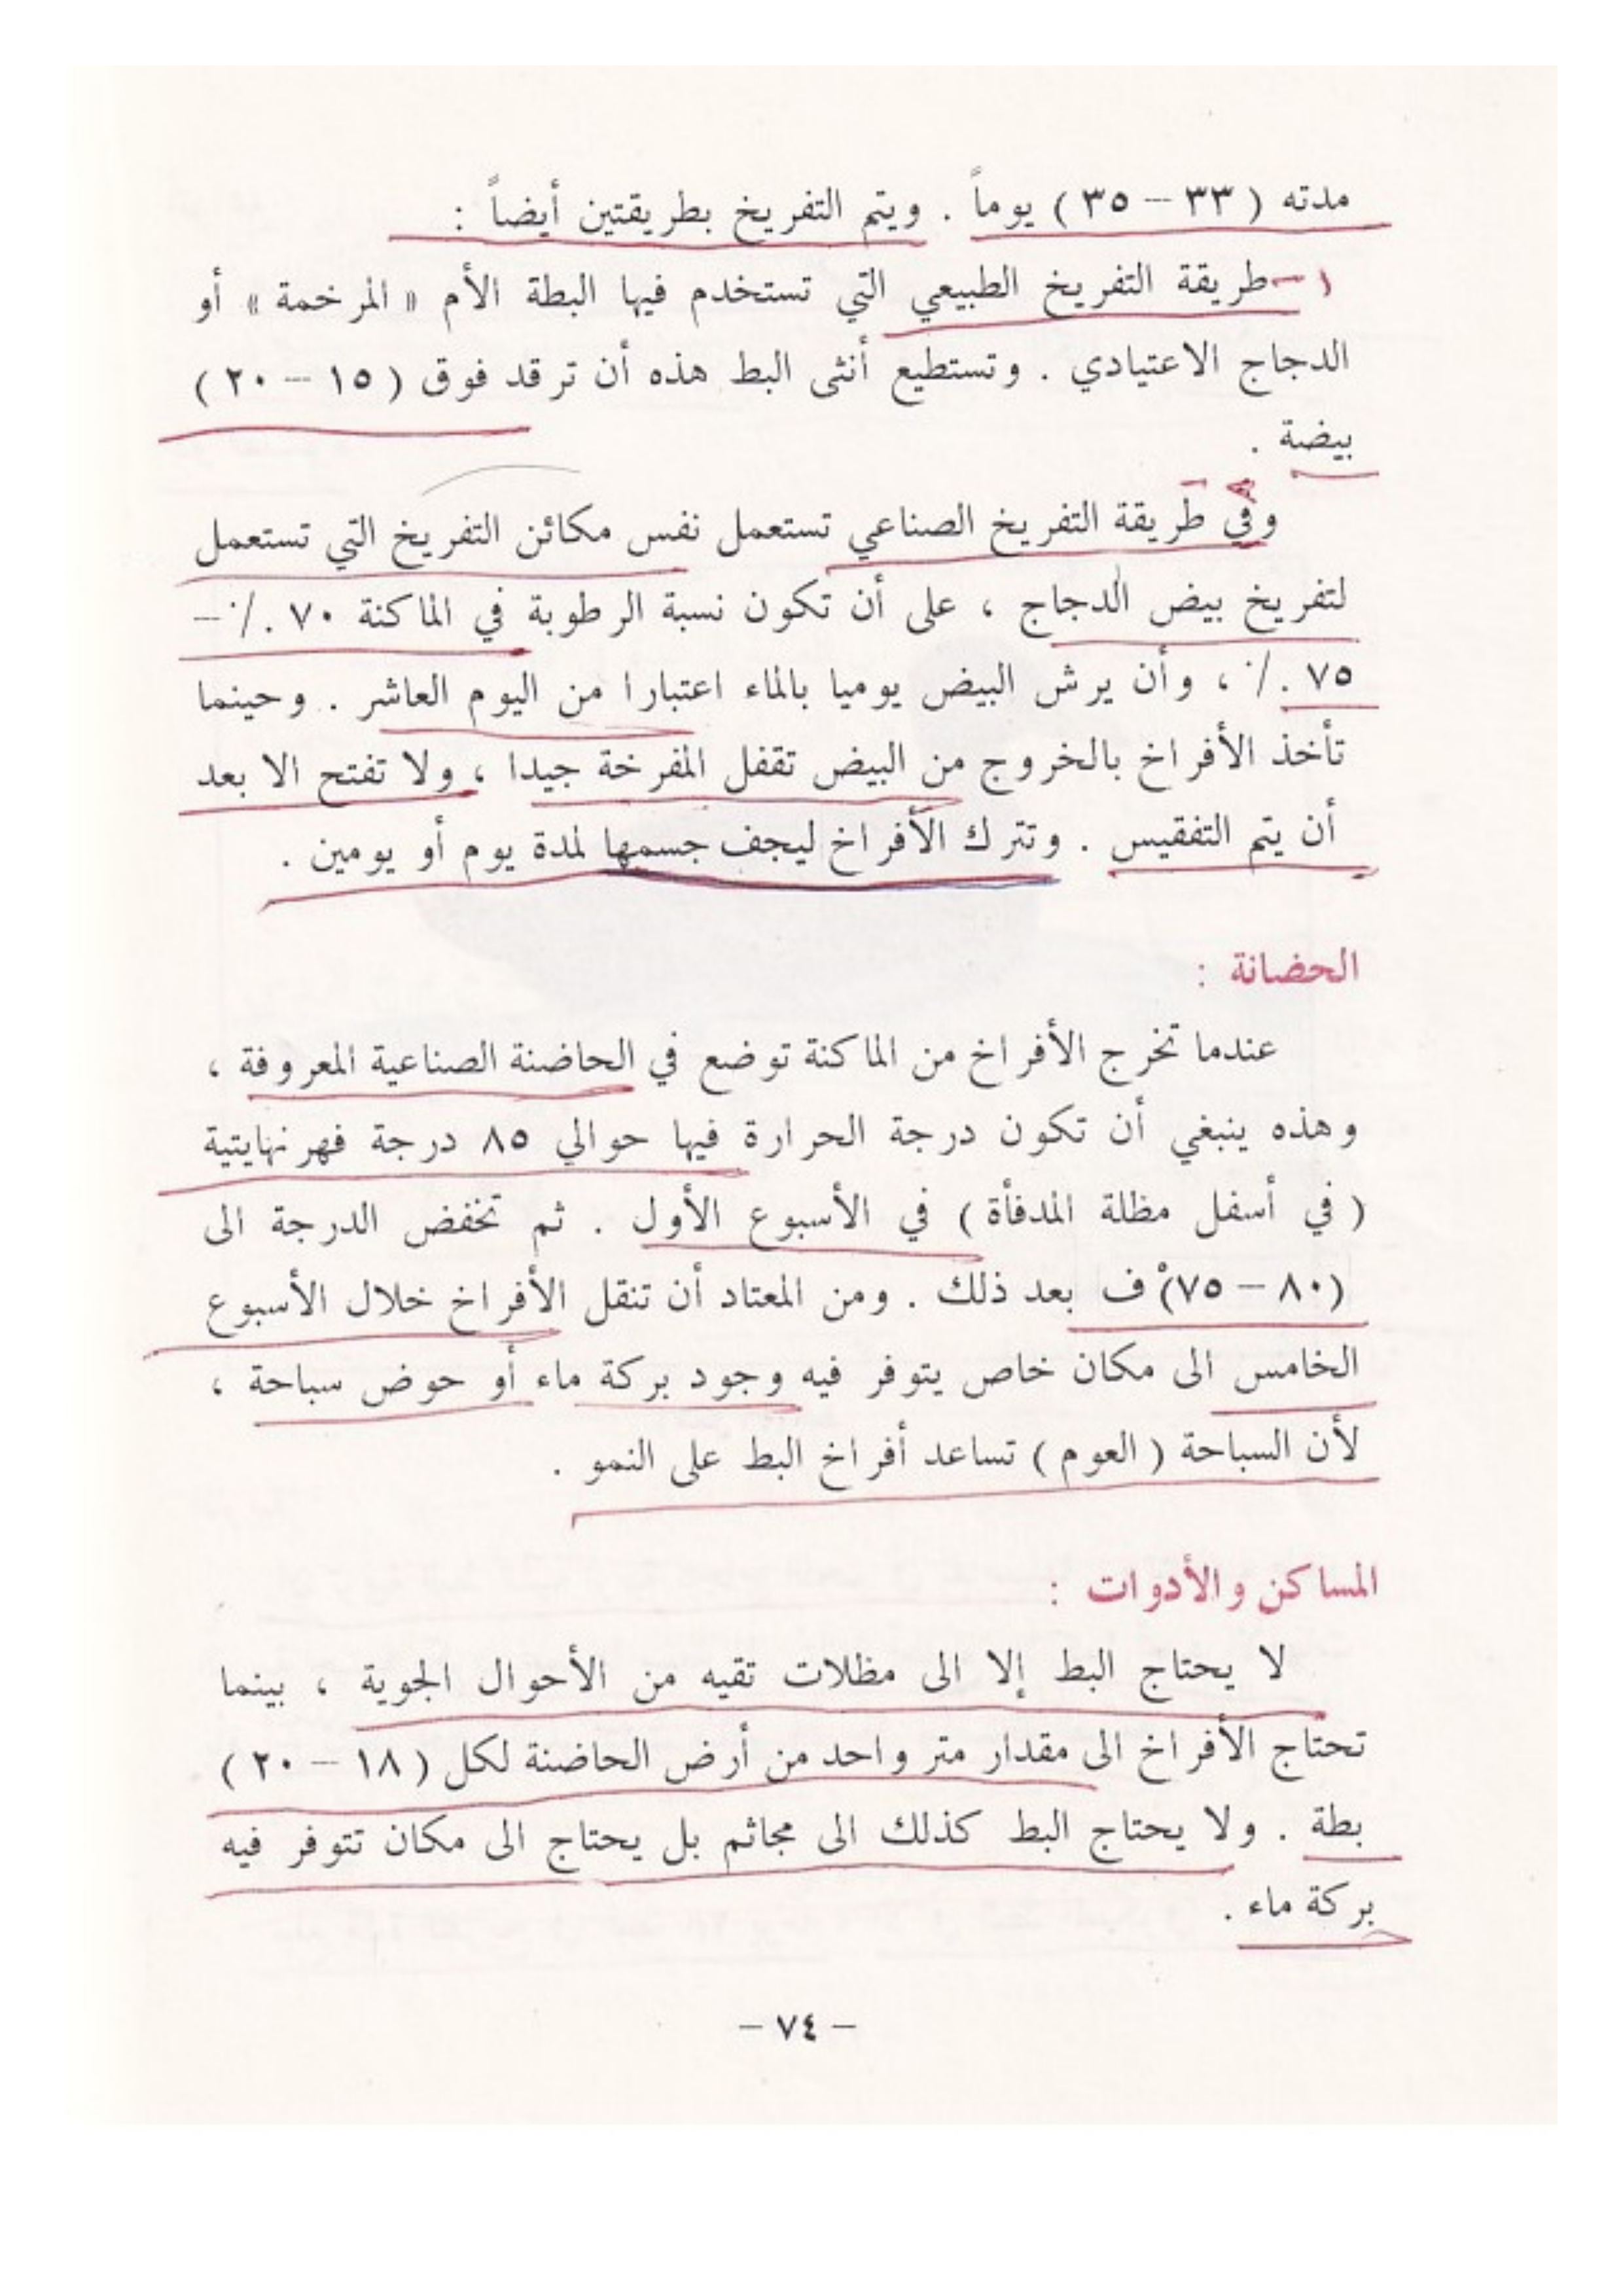 مدته ( ٣٣ – ٣٥ ) يوماً . ويتم التفريخ بطريقتين أيضاً :
١ – طريقة التفريخ الطبيعي التي تستخدم فيها البطة الأم « المرخمة » أو
الدجاج الاعتيادي . وتستطيع أنثى البط هذه أن ترقد فوق ( ١٥ – ٢٠ )
بيضة .
وفي طريقة التفريخ الصناعي تستعمل نفس مكائن التفريخ التي تستعمل
لتفريخ بيض الدجاج ، على أن تكون نسبة الرطوبة في الماكنة ٧٠ ٪ –
٧٥ ٪ ، وأن يرش البيض يوميا بالماء اعتبارا من اليوم العاشر . وحينما
تأخذ الأفراخ بالخروج من البيض تقفل المفرخة جيدا ، ولا تفتح الا بعد
أن يتم التفقيس . وتترك الأفراخ ليجف جسمها لمدة يوم أو يومين .
الحضانة :
عندما تخرج الأفراخ من الماكنة توضع في الحاضنة الصناعية المعروفة ،
وهذه ينبغي أن تكون درجة الحرارة فيها حوالي ٨٥ درجة فهرنهايتية
( في أسفل مظلة المدفأة ) في الأسبوع الأول . ثم تخفض الدرجة الى
(٨٠ – ٧٥)ْ ف بعد ذلك . ومن المعتاد أن تنقل الأفراخ خلال الأسبوع
الخامس الى مكان خاص يتوفر فيه وجود بركة ماء أو حوض سباحة ،
لأن السباحة ( العوم ) تساعد أفراخ البط على النمو .
المساكن والأدوات :
لا يحتاج البط إلا الى مظلات تقيه من الأحوال الجوية ، بينما
تحتاج الأفراخ الى مقدار متر واحد من أرض الحاضنة لكل ( ١٨ – ٢٠ )
بطة . ولا يحتاج البط كذلك الى مجاثم بل يحتاج الى مكان تتوفر فيه
بركة ماء .
– ٧٤ –